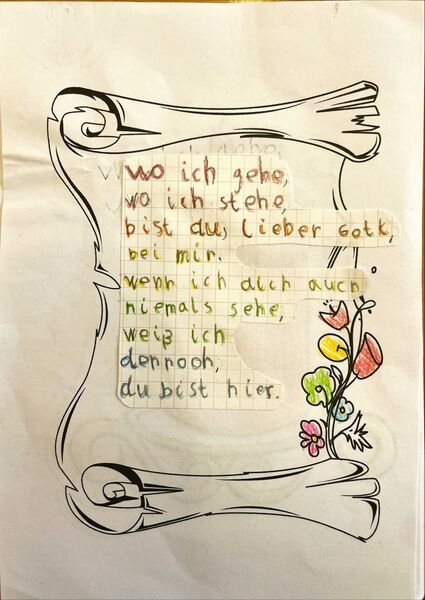 wo ich gehe,
wo ich stehe,
bist du, lieber Gott,
bei mir.
wenn ich dich auch
niemals sehe,
weiß ich
dennoch,
du bist hier.